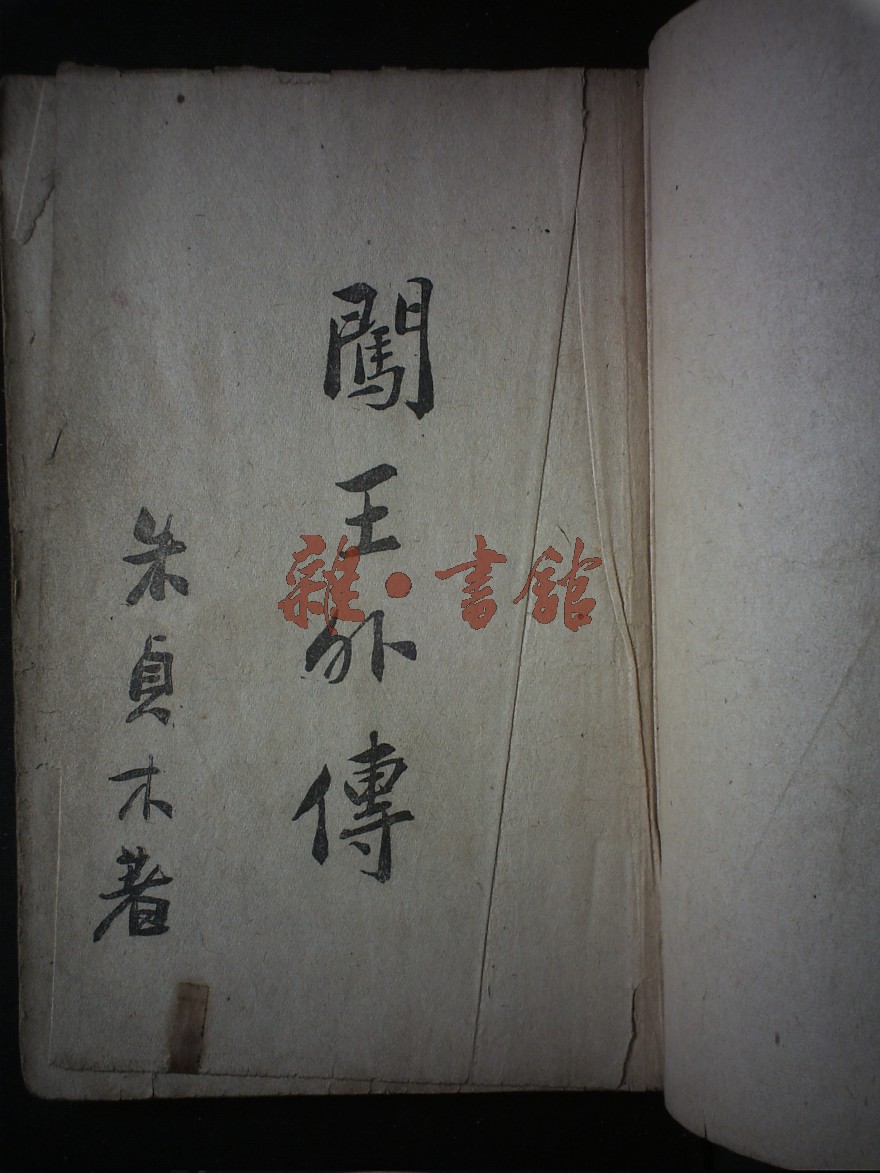 闖王外傳
朱貞木著
雜·書館